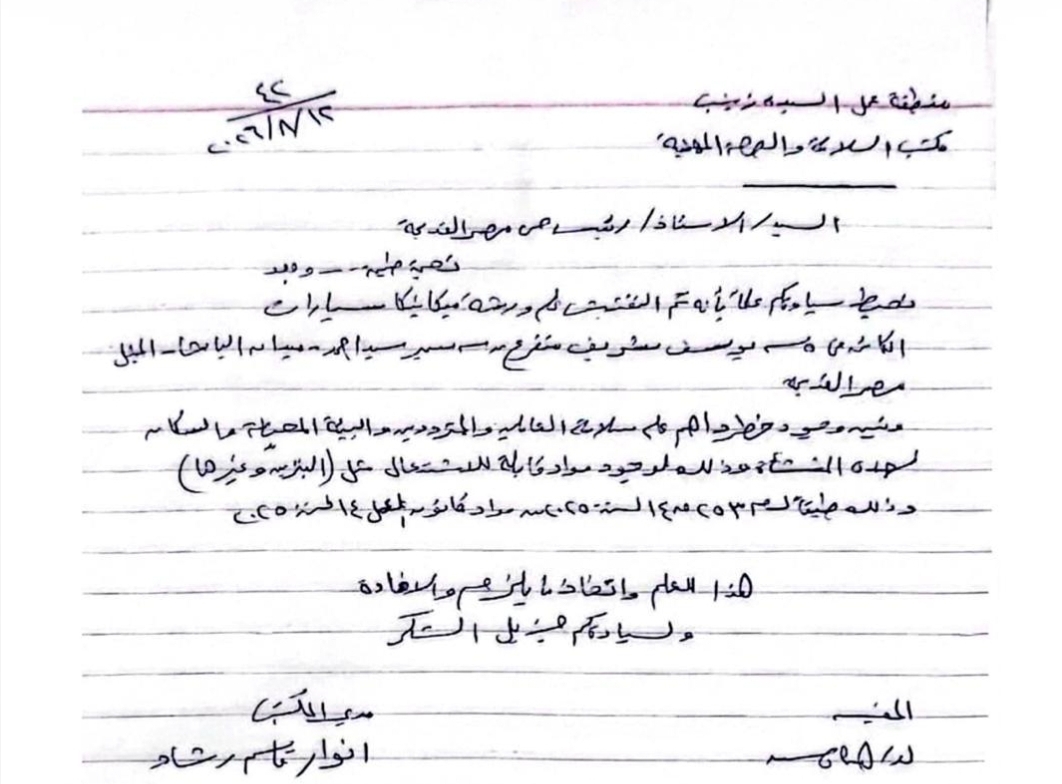 منطقة عمل السيدة زينب
٤٢
٢٠٢٦/١/١٢
مكتب السلامة والصحة المهنية
السيد/ الاستاذ/ رئيس حى مصر القديمة
تحية طيبة -- وبعد
نحيط سيادتكم علماً بأنه تم التفتيش على ورشة ميكانيكا سيارات
الكائنة فى ش يوسف شريف متفرع من سيد احمد - ميدان الباشا - المنيل
مصر القديمة
وتبين وجود خطر داهم على سلامة العاملين والمترددين والبيئة المحيطة والسكان
لهذه المنشأة وذلك لوجود مواد قابلة للاشتعال مثل (البنزين وغيرها)
وذلك طبقاً ٢٥٣ ١٤ لسنة ٢٠٢٥ من مواد قانون العمل ١٤ لسنة ٢٠٢٥
هذا للعلم واتخاذ ما يلزم والافادة
ولسيادتكم جزيل الشكر
المفتش
مدير المكتب
انوار قاسم رشاد